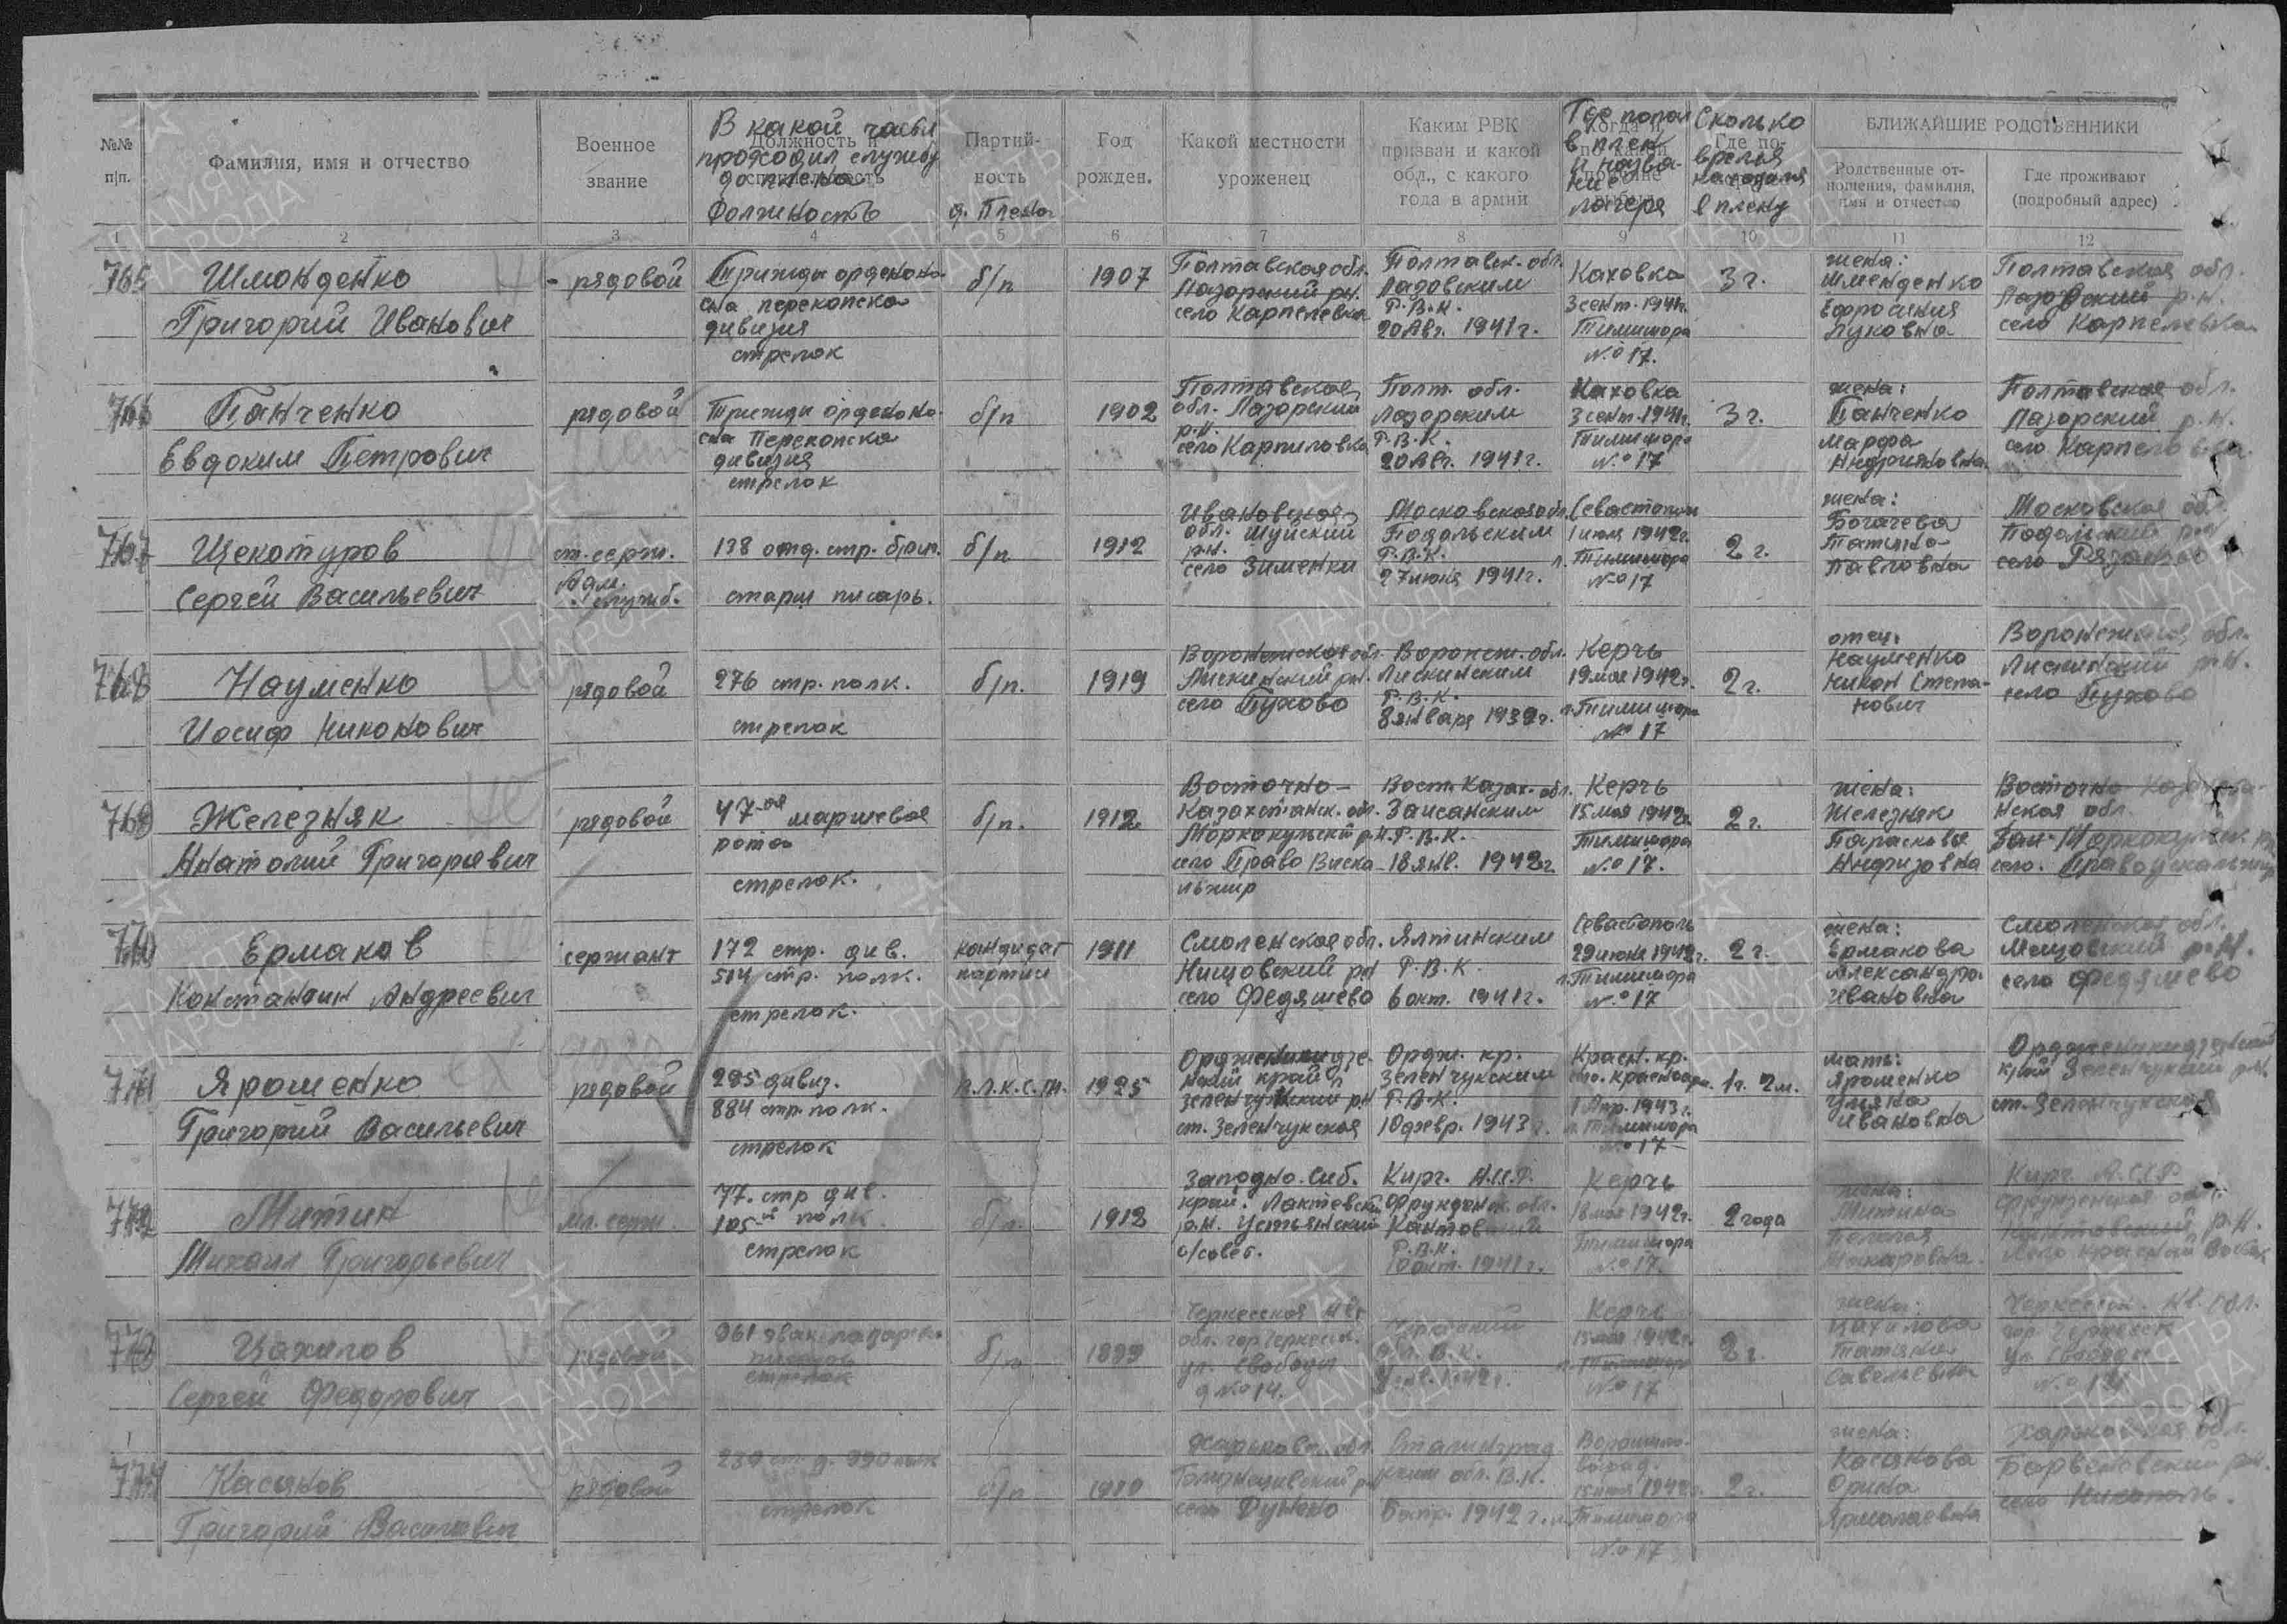 №№ п|п.
Фамилия, имя и отчество
Военное звание
В какой части проходил службу до плена должность
Должность и
Партий-ность
д. плена
Год рожден.
Какой местности уроженец
Каким РВК призван и какой обл., с какого года в армии
Где попал в плен и название лагеря
Когда и
Сколько время находился в плену
Где по-
БЛИЖАЙШИЕ РОДСТВЕННИКИ
Родственные от-ношения, фамилия, имя и отчество
Где проживают (подробный адрес)
1 2 3 4 5 6 7 8 9 10 11 12
765
Шмонденко
Григорий Иванович
рядовой
Трижды орденоно-
сна перекопска
дивизия
стрелок
б/п
1907
Полтавская обл.
Лазорский рн.
село Карпелевка
Полтавск. обл.
Лазовским
Р.В.К.
20 Авг. 1941г.
Каховка
3 сент. 1941г.
Тимишора
№ 17.
3 г.
жена:
Шменденко
Ефросиния
Луковна
Полтавская обл.
Лазорский р.н.
село Карпелевка
766
Панченко
Евдоким Петрович
рядовой
Трижди орденоно-
сна Перекопска
дивизия
стрелок
б/п
1902
Полтавская
обл. Лазорский
р.н.
село Карпиловка
Полт. обл.
Лазорским
Р.В.К.
20 Авг. 1941г.
Каховка
3 сент. 1941г.
Тимишора
№ 17
3 г.
жена:
Панченко
Марфа
Андрияновна
Полтавская обл.
Лазорский р.н.
село Карпеловка
767
Щекотуров
Сергей Васильевич
ст. серж.
Адм. служб.
138 отд. стр. бриг.
старш писарь.
б/п
1912
Ивановская
обл. Шуйский
р.н.
село Зименки
Московская обл.
Подольским
Р.В.К.
27 июня 1941г.
Севастополь
1 июля 1942г.
л. Тимишора
№ 17
2 г.
жена:
Богачева
Татьяна
Павловна
Московская обл.
Подольский рн
село
768
Науменко
Иосиф Никонович
рядовой
276 стр. полк.
стрелок
б/п.
1919
Воронежская обл.
Лискинский рн.
село Пухово
Воронеж. обл.
Лискинским
Р.В.К.
8 января 1939г.
Керчь
19 мая 1942г.
л. Тимишора
№ 17
2 г.
отец:
Науменко
Никон Степа-
нович
Воронежская обл.
Лискинский р.н.
село Пухово
769
Железняк
Анатолий Григорьевич
рядовой
47-ая маршевая
рота
стрелок.
б/п.
1912
Восточно-
Казахстанск. обл.
Маркакульский р.н.
село Право
Вост. Казах. обл.
Зайсанским
Р.В.К.
18 янв. 1942г.
Керчь
15 мая 1942г.
Тимишора
№ 17.
2 г.
жена:
Железняк
Парасковя
Анфизовна
Восточно Казахста-
нская обл.
село.
770
Ермаков
Константин Андреевич
сержант
172 стр. див.
514 стр. полк.
стрелок.
кандидат
партии
1911
Смоленская обл.
Нищовский рн
село Федяшево
Ялтинским
Р.В.К.
6 окт. 1941г.
Севастополь
29 июня 1942г.
л. Тимишора
№ 17
2 г.
жена:
Ермакова
Александра
Ивановна
Смоленская обл.
Мещовский р.н.
село Федяшево
771
Ярошенко
Григорий Васильевич
рядовой
295 дивиз.
884 стр. полк.
стрелок
В.Л.К.С.М.
1925
Орджоникидзе-
нский край
Зеленчукский рн
ст. Зеленчукская
Ордж. кр.
Зеленчукским
Р.В.К.
10 февр. 1943 г.
Красн. кр.
1 Апр. 1943г.
л. Тимишора
№ 17
1 г. 2 м.
мать:
Ярошенко
Уляна
Ивановна
Орджоникидзевский
край Зеленчукский рн.
ст. Зеленчукская
772
Митин
Михаил Григорьевич
мл. серж.
77. стр див.
105-й полк
стрелок
б/п.
1912
Западно-Сиб.
край. Лактевский
р.н. Устьянский
с/совет.
Кирг. А.С.Р.
Фрунзенск. обл.
Кантовский
Р.В.К.
10 окт. 1941г.
Керчь
18 мая 1942г.
Тимишора
№ 17.
2 года
жена:
Митина
Пелагея
Макаровна
Кирг. А.С.Р
Фрунзенская обл.
Кантовский р.н.
село Красный Восток
773
Цахилов
Сергей Федорович
рядовой
961
стрелок
б/п
1899
Черкесская
обл. гор Черкесск.
ул. Свободы
д № 14.
Керчь
15 мая 1942г.
№ 17
2 г.
жена:
Цахилова
Татьяна
Савельевна
Черкесск. Ав. обл.
гор. Черкесск
ул. Свободы
774
Касянов
Григорий Васильевич
рядовой
230 ст. д. 990 полк
стрелок
б/п
Харьковск. обл.
село
обл. В.К.
1942 г.
Ворошило-
вград.
15 июля 1942г.
Тимишора
№ 17
2 г.
жена:
Касянова
Орина
Ярмолаевна
Харьковская обл.
Барвенковский рн.
село Никополь.
ПАМЯТЬ НАРОДА